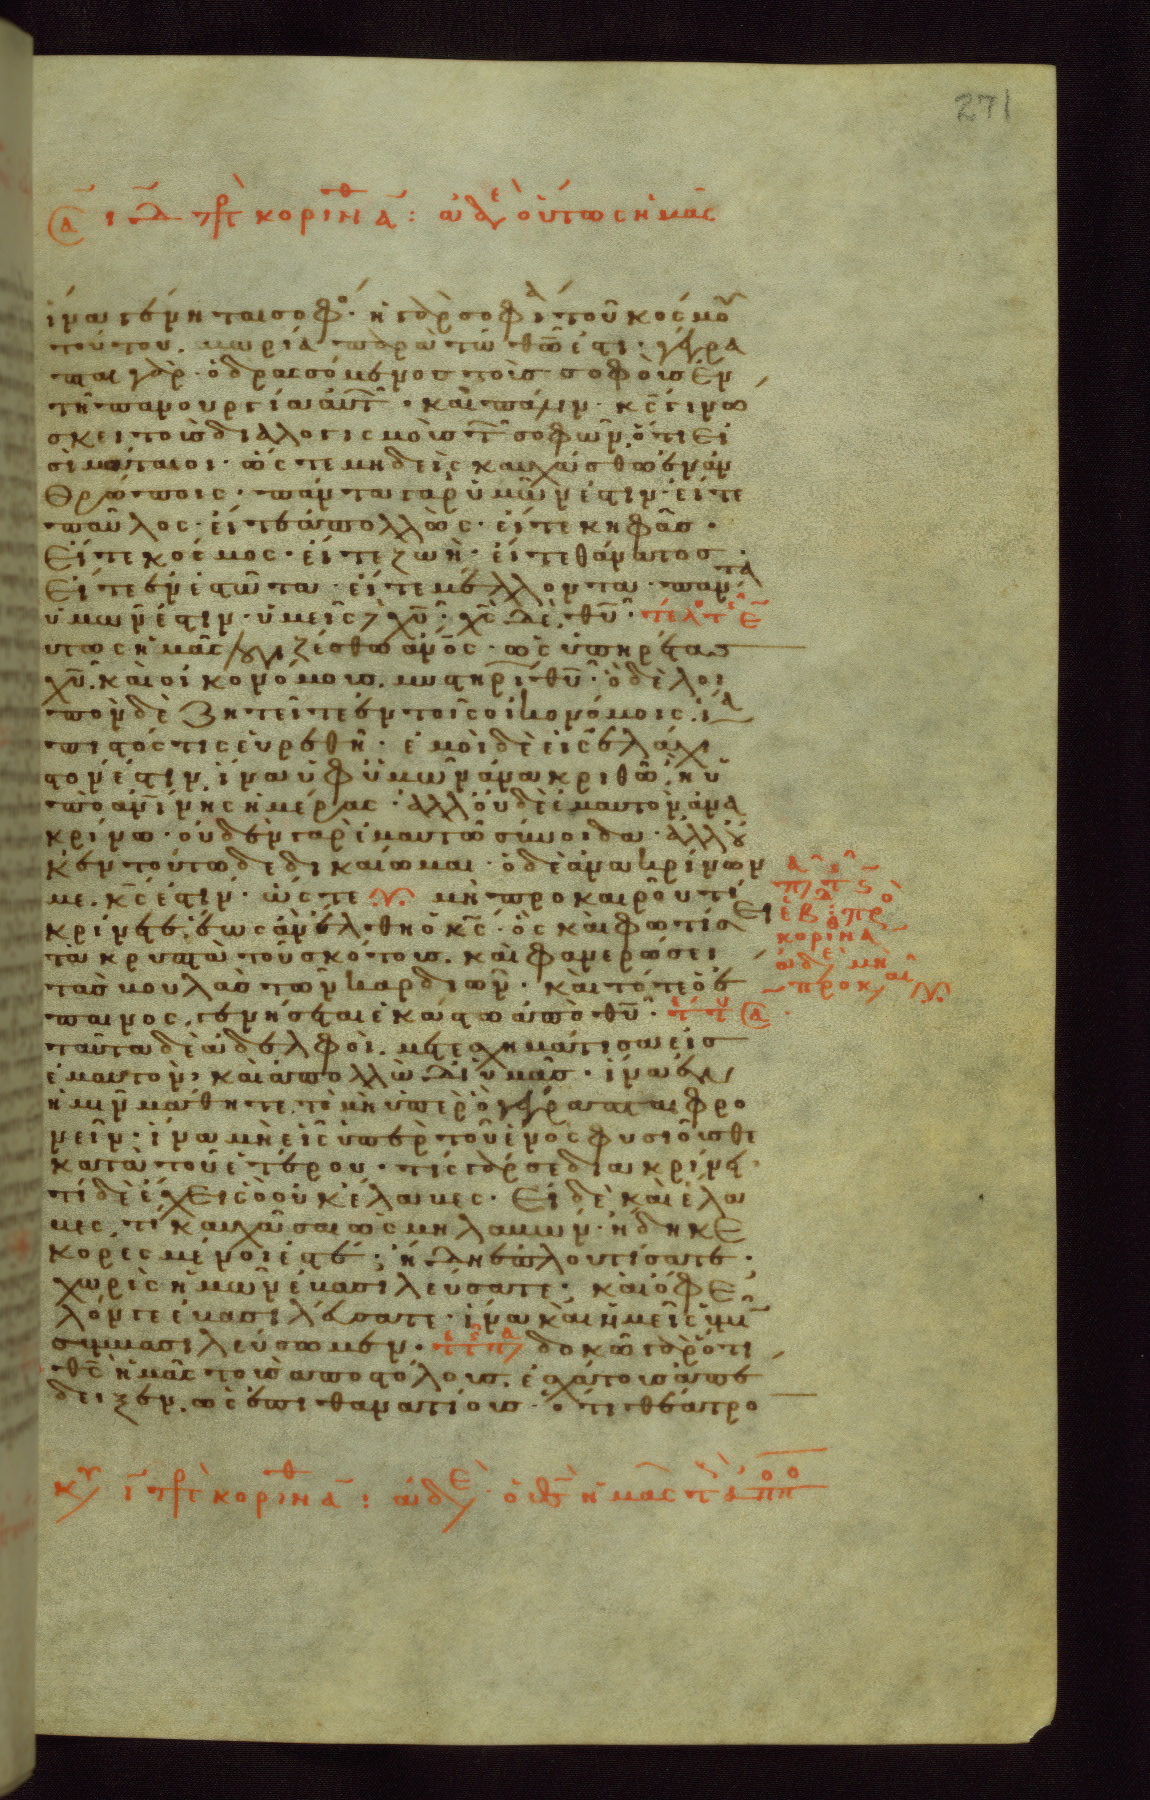 271
ἵνα γένηται σοφός· ἡ γὰρ σοφία τοῦ κόσμου
τούτου. μωρία παρὰ τῶ θω ἐστι· γέγρα
πται γάρ· ὁ δρασσόμενος τοὺς σοφοὺς ἐν
τῆ πανουργία αὐτῶν· καὶ πάλιν· κς γινώ
σκει τοὺς διαλογισμοὺς τῶν σοφῶν, ὅτι εἰ
σὶ μάταιοι· ὥστε μηδεὶς καυχάσθω ἐν ἀν
θρώποις· πάντα γὰρ ὑμῶν ἐστιν· εἴτε
παῦλος· εἴτε ἀπολλὼς· εἴτε κηφᾶς·
εἴτε κόσμος· εἴτε ζωὴ· εἴτε θάνατος·
εἴτε ἐνεστῶτα· εἴτε μέλλοντα· πάντα
ὑμῶν ἐστιν· ὑμεῖς δὲ χυ· χς δὲ, θυ·
υτως ἡμᾶς λογιζέσθω ἄνος· ὡς ὑπηρέτας
χυ. καὶ οἰκονόμους. μυστηρίων θυ· ὃ δὲ λοι
πὸν δὲ ζητεῖτε ἐν τοῖς οἰκονόμοις. ἵνα
πιστός τις εὑρεθῆ· ἐμοὶ δὲ εἰς ἐλάχι
στόν ἐστιν, ἵνα ὑφ ὑμῶν ἀνακριθῶ, ἢ ὑ
πὸ ἀνίνης ἡμέρας· ἀλλ οὐδὲ ἐμαυτὸν ἀνα
κρίνω· οὐδὲν γὰρ ἐμαυτῶ σύνοιδα· ἀλλ οὐ
κ ἐν τούτω δεδικαίωμαι· ὁ δὲ ἀνακρίνων
με. κς ἐστιν· ὥστε μὴ πρὸ καιροῦ τί
κρίνετε. ἕως ἂν ἔλθη ὁ κς· ὃς καὶ φωτίσει
τὰ κρυπτὰ τοῦ σκότους. καὶ φανερώσει
τὰς βουλὰς τῶν καρδιῶν· καὶ τότε ὁ ἔ
παινος, γενήσεται ἑκάστω ἀπὸ θυ·
ταῦτα δὲ ἀδελφοὶ. μετεσχημάτισα εἰς
ἐμαυτὸν, καὶ ἀπολλὼ δι ὑμᾶς· ἵνα ἐν
ἡμῖν μάθητε. τὸ μὴ ὑπὲρ ὃ γέγραπται φρο
νεῖν· ἵνα μὴ εἷς ὑπὲρ τοῦ ἑνὸς φυσιοῦσθε
κατὰ τοῦ ἑτέρου· τίς γάρ σε διακρίνει·
τί δὲ ἔχεις ὃ οὐκ ἔλαβες· εἰ δὲ καὶ ἔλα
βες, τί καυχᾶσαι ὡς μὴ λαβών· ἤδη κε
κορεσμένοι ἐστέ· ἤδη ἐπλουτίσατε·
χωρὶς ἡμῶν ἐβασιλεύσατε· καὶ ὄφε
λόν γε ἐβασιλεύσατε· ἵνα καὶ ἡμεῖς ὑμῖν
συμβασιλεύσωμεν· δοκῶ γὰρ ὅτι
θς ἡμᾶς τοὺς ἀποστόλους. ἐσχάτους ἀπέ
δειξεν. ὡς ἐπιθανατίους· ὅτι θέατρο